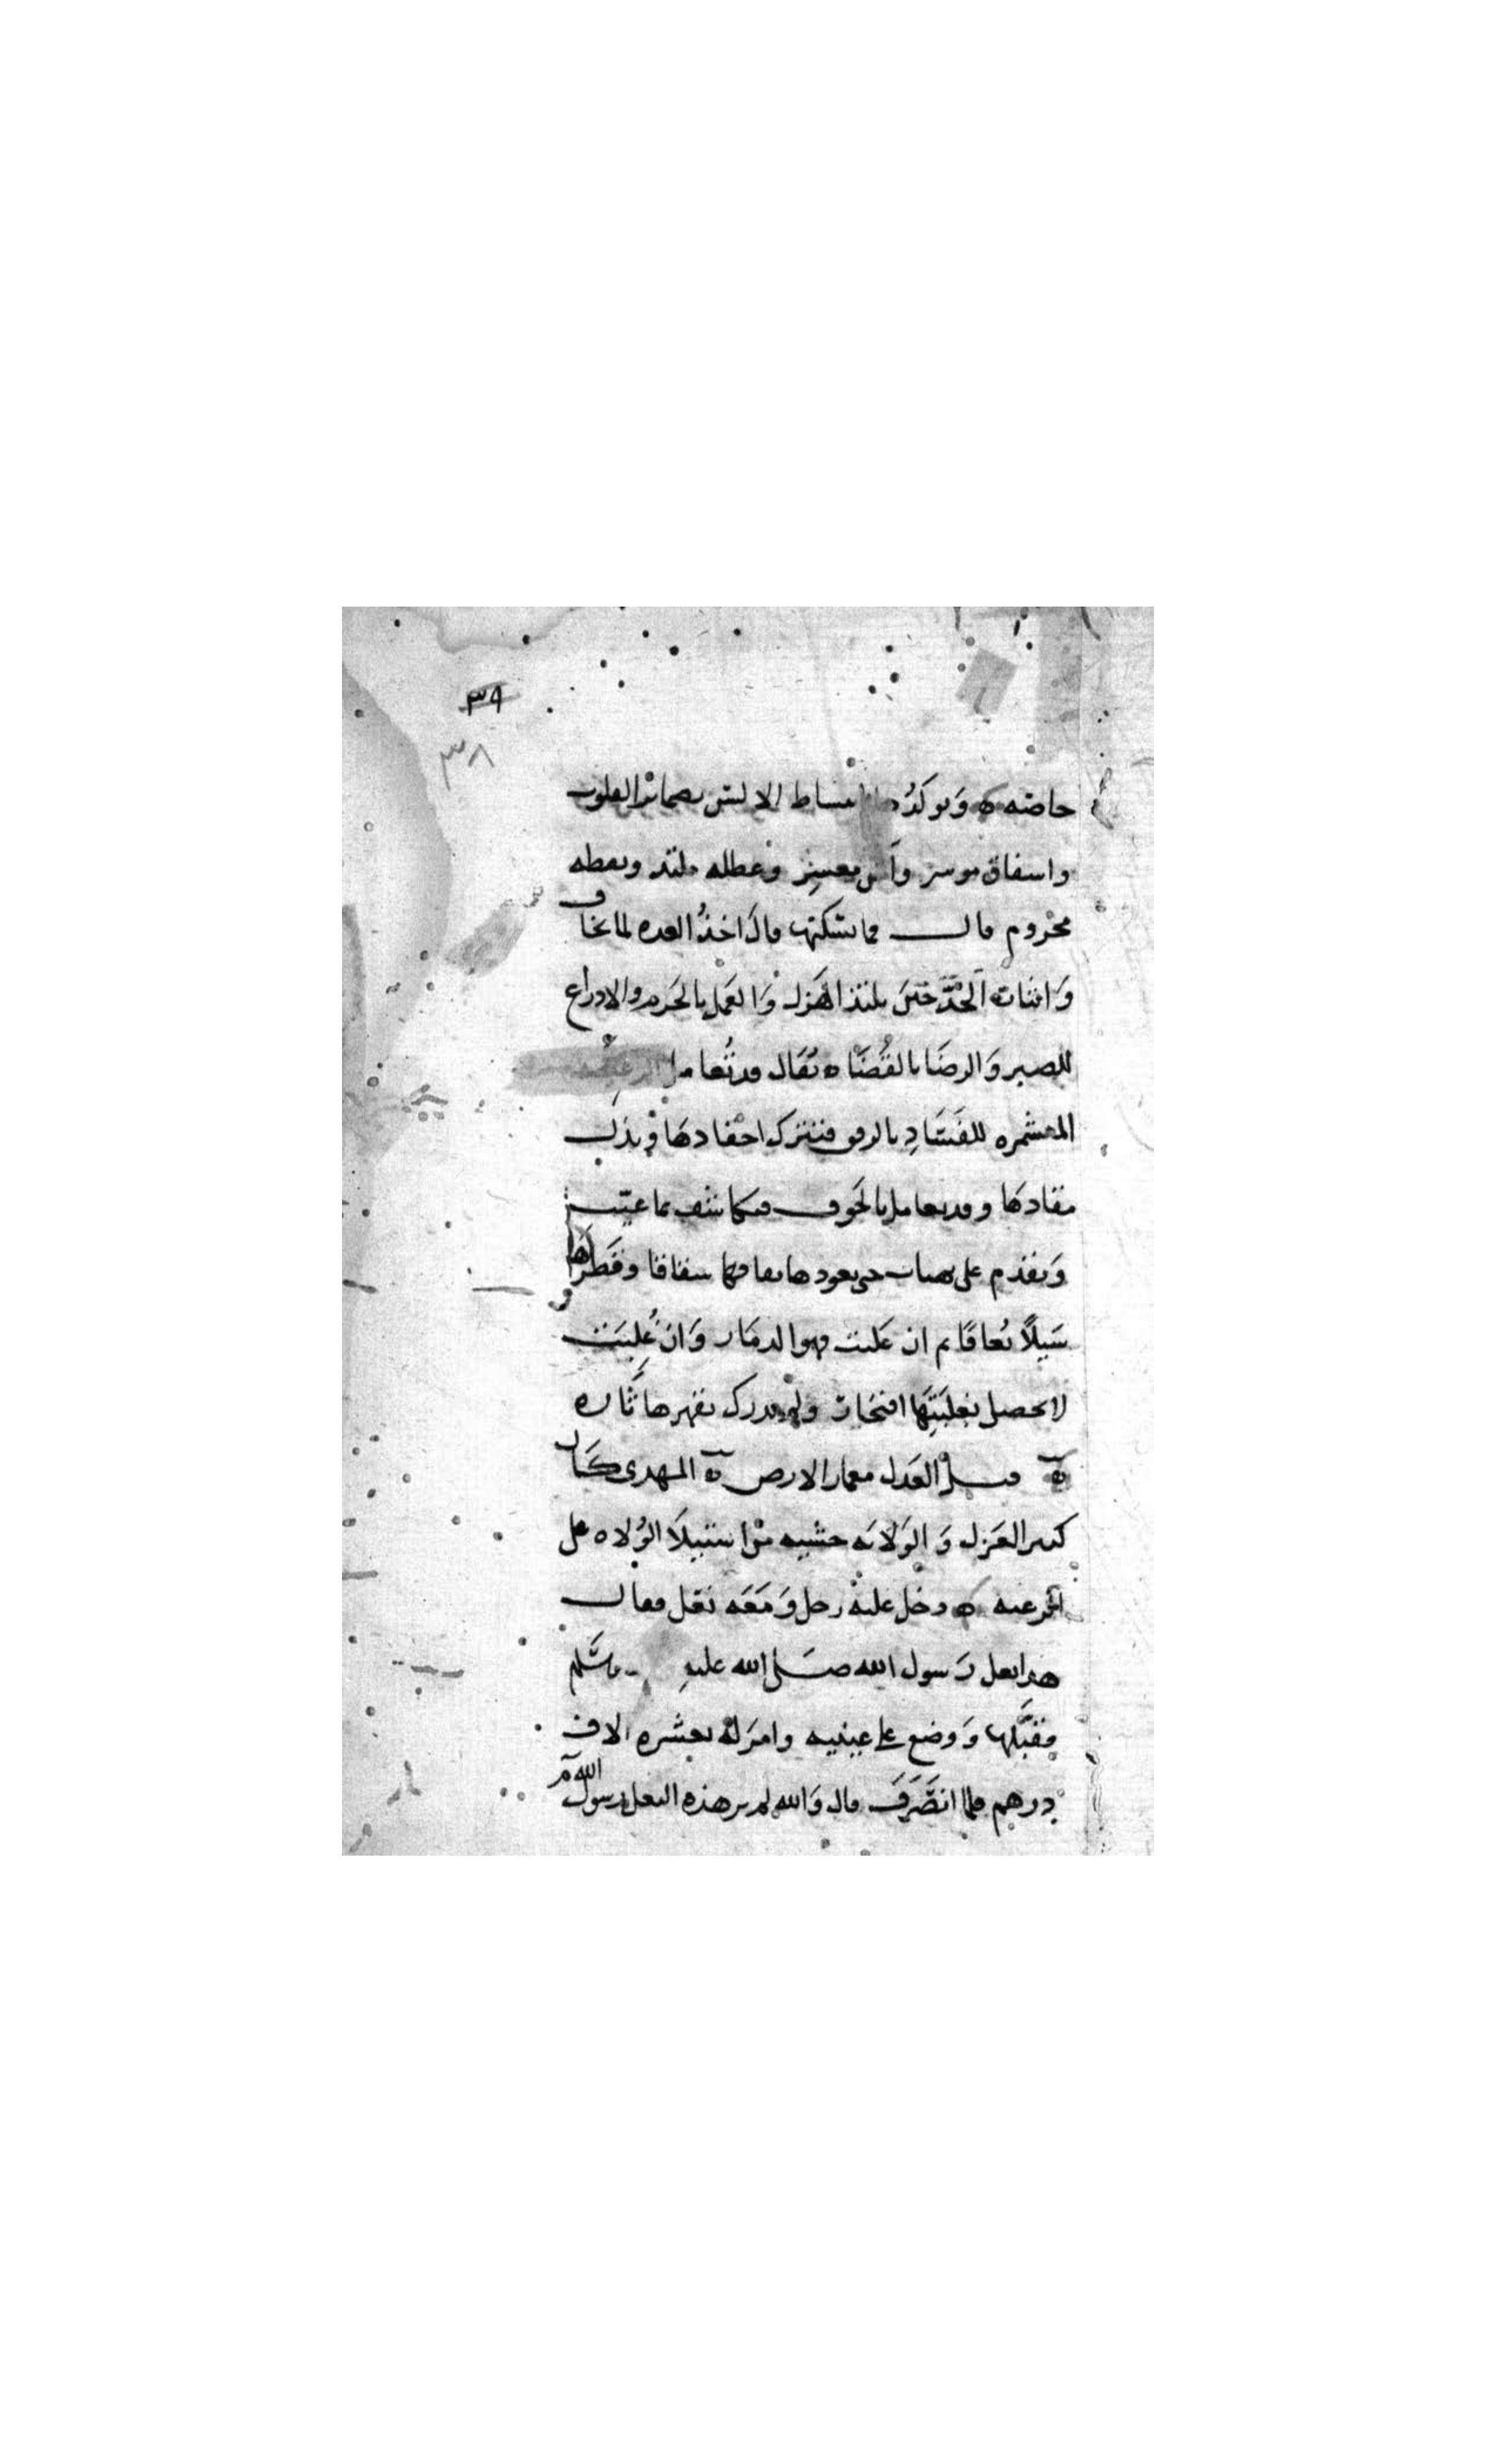 ٣٩
٣٨
خاصته ه ويوكد انبساط الالسن بضمائر القلوب
واشفاق موسر و معسر وعطله ويقظه
محروم قال فما يسكنها قال اخذ العده لما يخاف
واثبات الجد حين يلتذ الهزل والعمل بالحزم والادراع
للصبر والرضا بالقضا ه يقال قد تعامل الرعيه
المستمره للفساد بالرفق فتترك احقادها ويذل
مقادها وقد تعامل بالخرق فتكاشف بما غيبت
وتقدم على حتى يعود نفاقها شقاقا وقطرها
سيلا بعاقا ثم ان غلبت فهو الدمار وان غلبت
لا يحصل بغلبتها افتخار ولم يدرك بقهرها ثار ه
ه قيل العدل معمار الارض ه المهدي كان
كثير العزل والولايه خشيه من استيلا الولاه على
الرعيه ه دخل عليه رجل ومعه نعل فقال
هذا نعل رسول الله صلى الله عليه وسلم
فقبلها ووضع على عينيه وامر له بعشره الاف
درهم فلما انصرف قال والله لم ير هذه النعل رسول الله